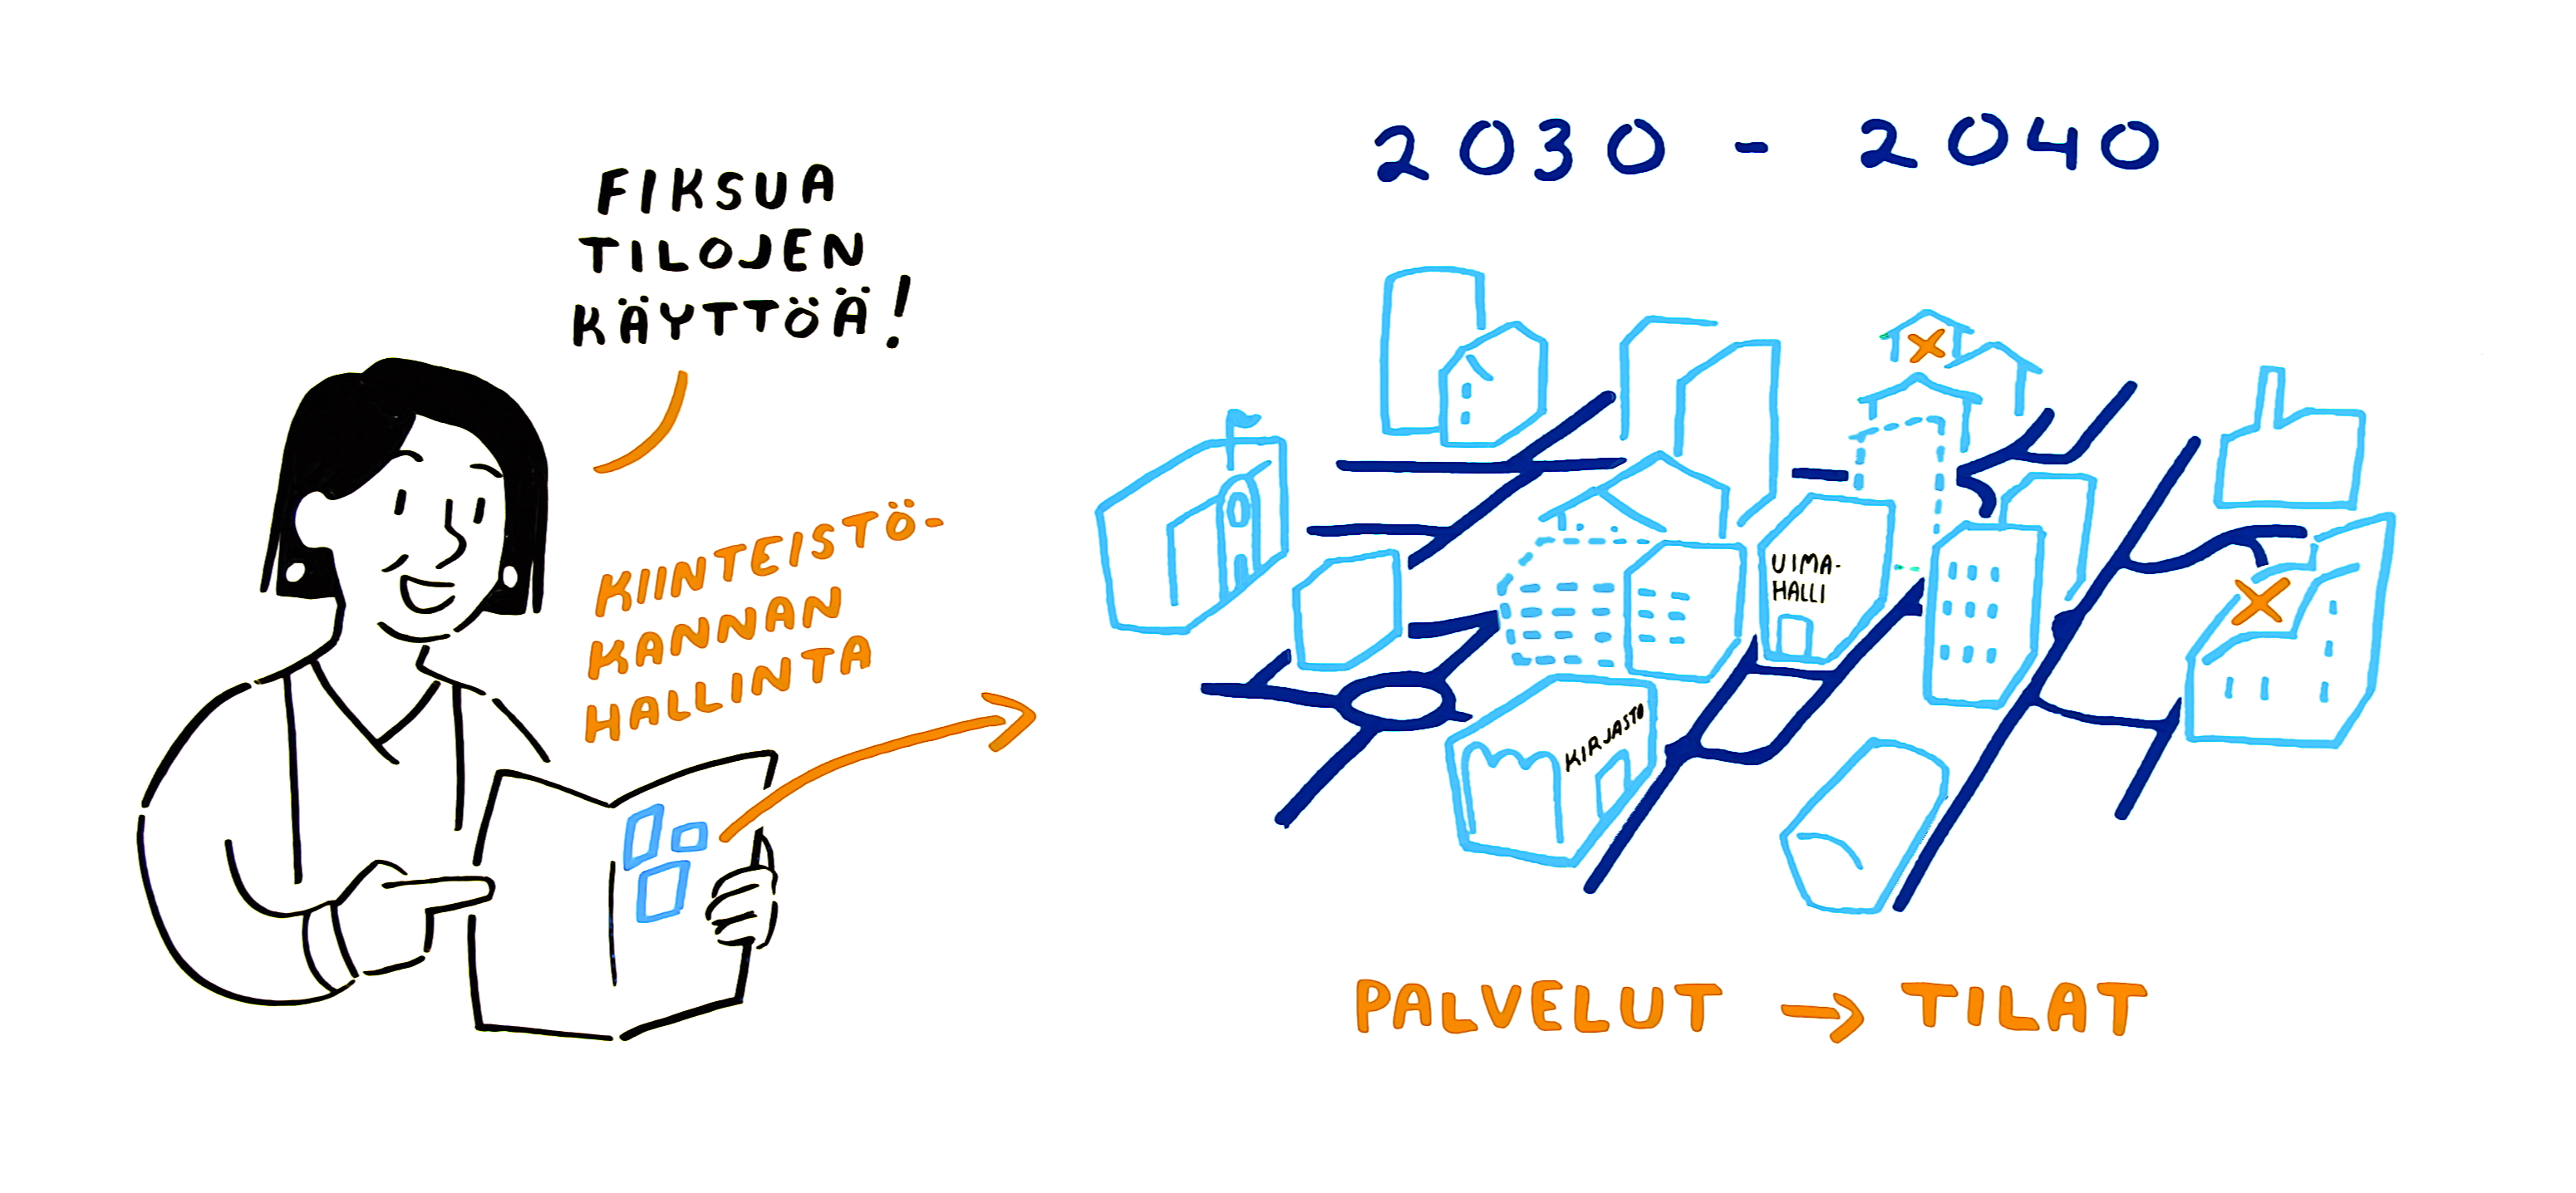 FIKSUA
TILOJEN
KÄYTTÖÄ!
KIINTEISTÖ-
KANNAN
HALLINTA
2030 - 2040
UIMA-
HALLI
KIRJASTO
PALVELUT → TILAT